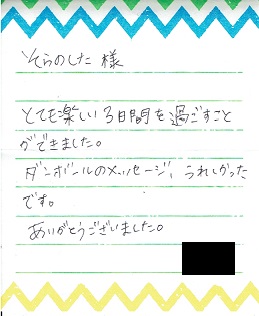 そらのした 様
とても楽しい3日間を過ごすこと
ができました。
ダンボールのメッセージ、うれしかった
です。
ありがとうございました。